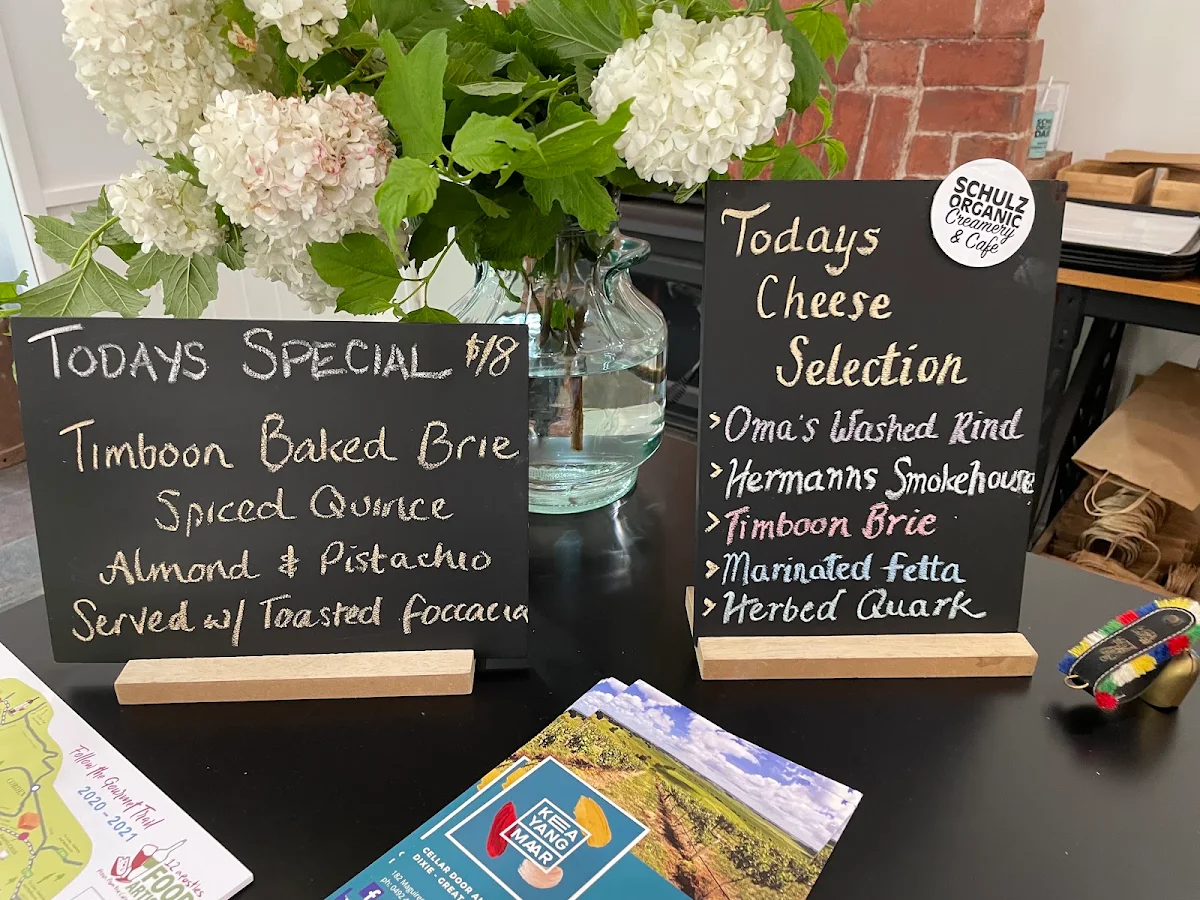 TODAYS SPECIAL $18
Timboon Baked Brie
Spiced Quince
Almond & Pistachio
Served w/ Toasted foccacia
Todays
Cheese
Selection
> Oma's Washed Rind
> Hermanns Smokehouse
> Timboon Brie
> Marinated fetta
> Herbed Quark
SCHULZ
ORGANIC
Creamery
& Cafe
Follow the Gourmet Trail
2020-2021
12 apostles
FOOD
ARTI
KEEA
YANG
MAAR
CELLAR DOOR A
DIXIE - GREAT
182 Maguires
ph: 0492
f